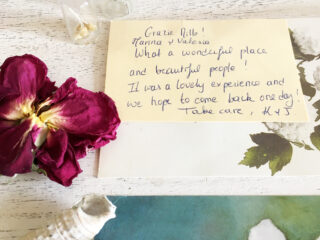 Grazie Mille!
Hanna & Valeria
What a wonderful place
and beautiful people!
It was a lovely experience and
we hope to come back one day!
Take care,